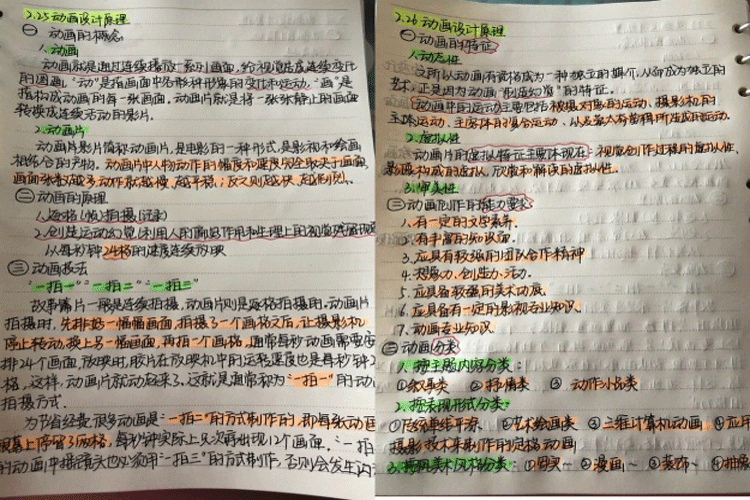 2.25动画设计原理
一 动画的概念
1.动画
动画就是通过连续播放一系列画面,给视觉造成连续变化
的图画。“动”是指画面中各形种形象的变化和运动。“画”是
指构成动画的每一张画面,动画片就是将一张张静止的画面
转换成连续活动的影片。
2.动画片
动画片影片简称动画片,是电影的一种形式,是影视和绘画
相结合的产物。动画片中人物动作的幅度和速度完全取决于画面,
画面张数越多动作就越慢、越平稳;反之则越快、越剧烈。
二 动画的原理
1.逐格(帧)拍摄(记录)
2.创造运动幻觉(利用人的
以每秒钟24格的速度连续放映
三 动画技法
“一拍一”“一拍二”“一拍三”
故事篇片一般是连续拍摄,动画片则是逐格拍摄的。动画片
拍摄时,先排好一幅幅画面,拍摄了一个画格之后,让摄影机
停止转动,换上另一幅画面,再拍一个画格,通常每秒动画需要安
排24个画面,放映时,胶片在放映机中的运转速度也是每秒钟2
格,这样,动画片就动起来了,这就是通常称为“一拍一”的动
拍摄方式。
为节省经费,很多动画是“一拍二”的方式制作的,即每张动画
屏幕上停留了两格,每秒钟实际上只次再出现12个画面。“一拍
的动画中摇镜头也必须用“一拍三”的方式制作,否则会发生
2.26动画设计原理
一 动画的特征
1.动态性
之所以动画有资格成为一种独立的媒介,从而成为独立的
艺术,正是因为动画“制造幻觉”的特征。
动画中的运动主要包括被摄对象的运动、摄影机的
主体运动、主客体的复合运动、以及蒙太奇剪辑所生成的运动。
2.虚拟性
动画片的虚拟特征主要体现在:视觉创作过程的虚拟性、
影画构成的虚拟、放映和解读的虚拟性。
3.审美性
三 动画创作的能力要求
1.有一定的文学素养。
2.有丰富的知识面。
3.应具有较强的团队合作精神
4.想象力、创造力、活力。
5.应具备较强的美术功底。
6.应具备有一定的影视专业知识。
7.动画专业知识。
三 动画分类
1.按主题内容分类:
①叙事类 ②抒情类 ③动作小品类
2.按表现形式分类:
①传统单线平涂 ②艺术绘画类 ③三维计算机动画 ④应用
摄影技术来制作的定格动画
3.按照美术风格分类:①写实~ ②漫画~ ③装饰~ ④抽象